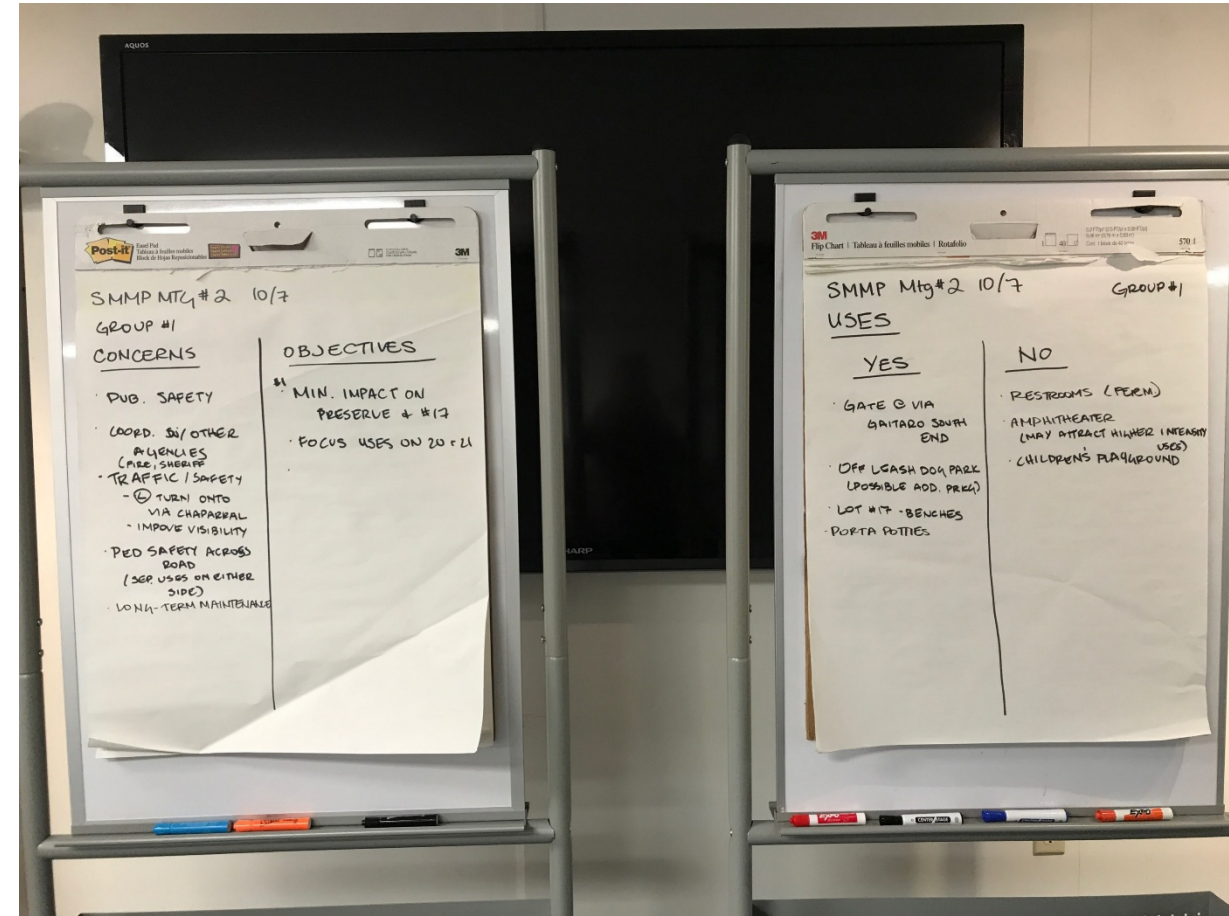 AQUOS
Post-it
Easel Pad
Tableau à feuilles mobiles
Block de Hojas Reposicionables
3M
SMMP MTG #2 10/7
GROUP #1
CONCERNS
· PUB. SAFETY
· COORD. W/ OTHER
AGENCIES
(FIRE, SHERIFF
· TRAFFIC / SAFETY
- L TURN ONTO
VIA CHAPARRAL
- IMPOVE VISIBILITY
· PED SAFETY ACROSS
ROAD
(SEP. USES ON EITHER
SIDE)
· LONG-TERM MAINTENANCE
OBJECTIVES
#1
· MIN. IMPACT ON
PRESERVE & #17
· FOCUS USES ON 20 & 21
·
SHARP
3M
Flip Chart | Tableau à feuilles mobiles | Rotafolio
40
570
SMMP Mtg #2 10/7 GROUP #1
USES
YES
· GATE @ VIA
GAITARO SOUTH
END
· OFF LEASH DOG PARK
(POSSIBLE ADD. PRKG)
· LOT #17 - BENCHES
· PORTA POTTIES
NO
· RESTROOMS (PERM)
· AMPHITHEATER
(MAY ATTRACT HIGHER INTENSITY
USES)
· CHILDREN'S PLAYGROUND
EXPO
EXPO